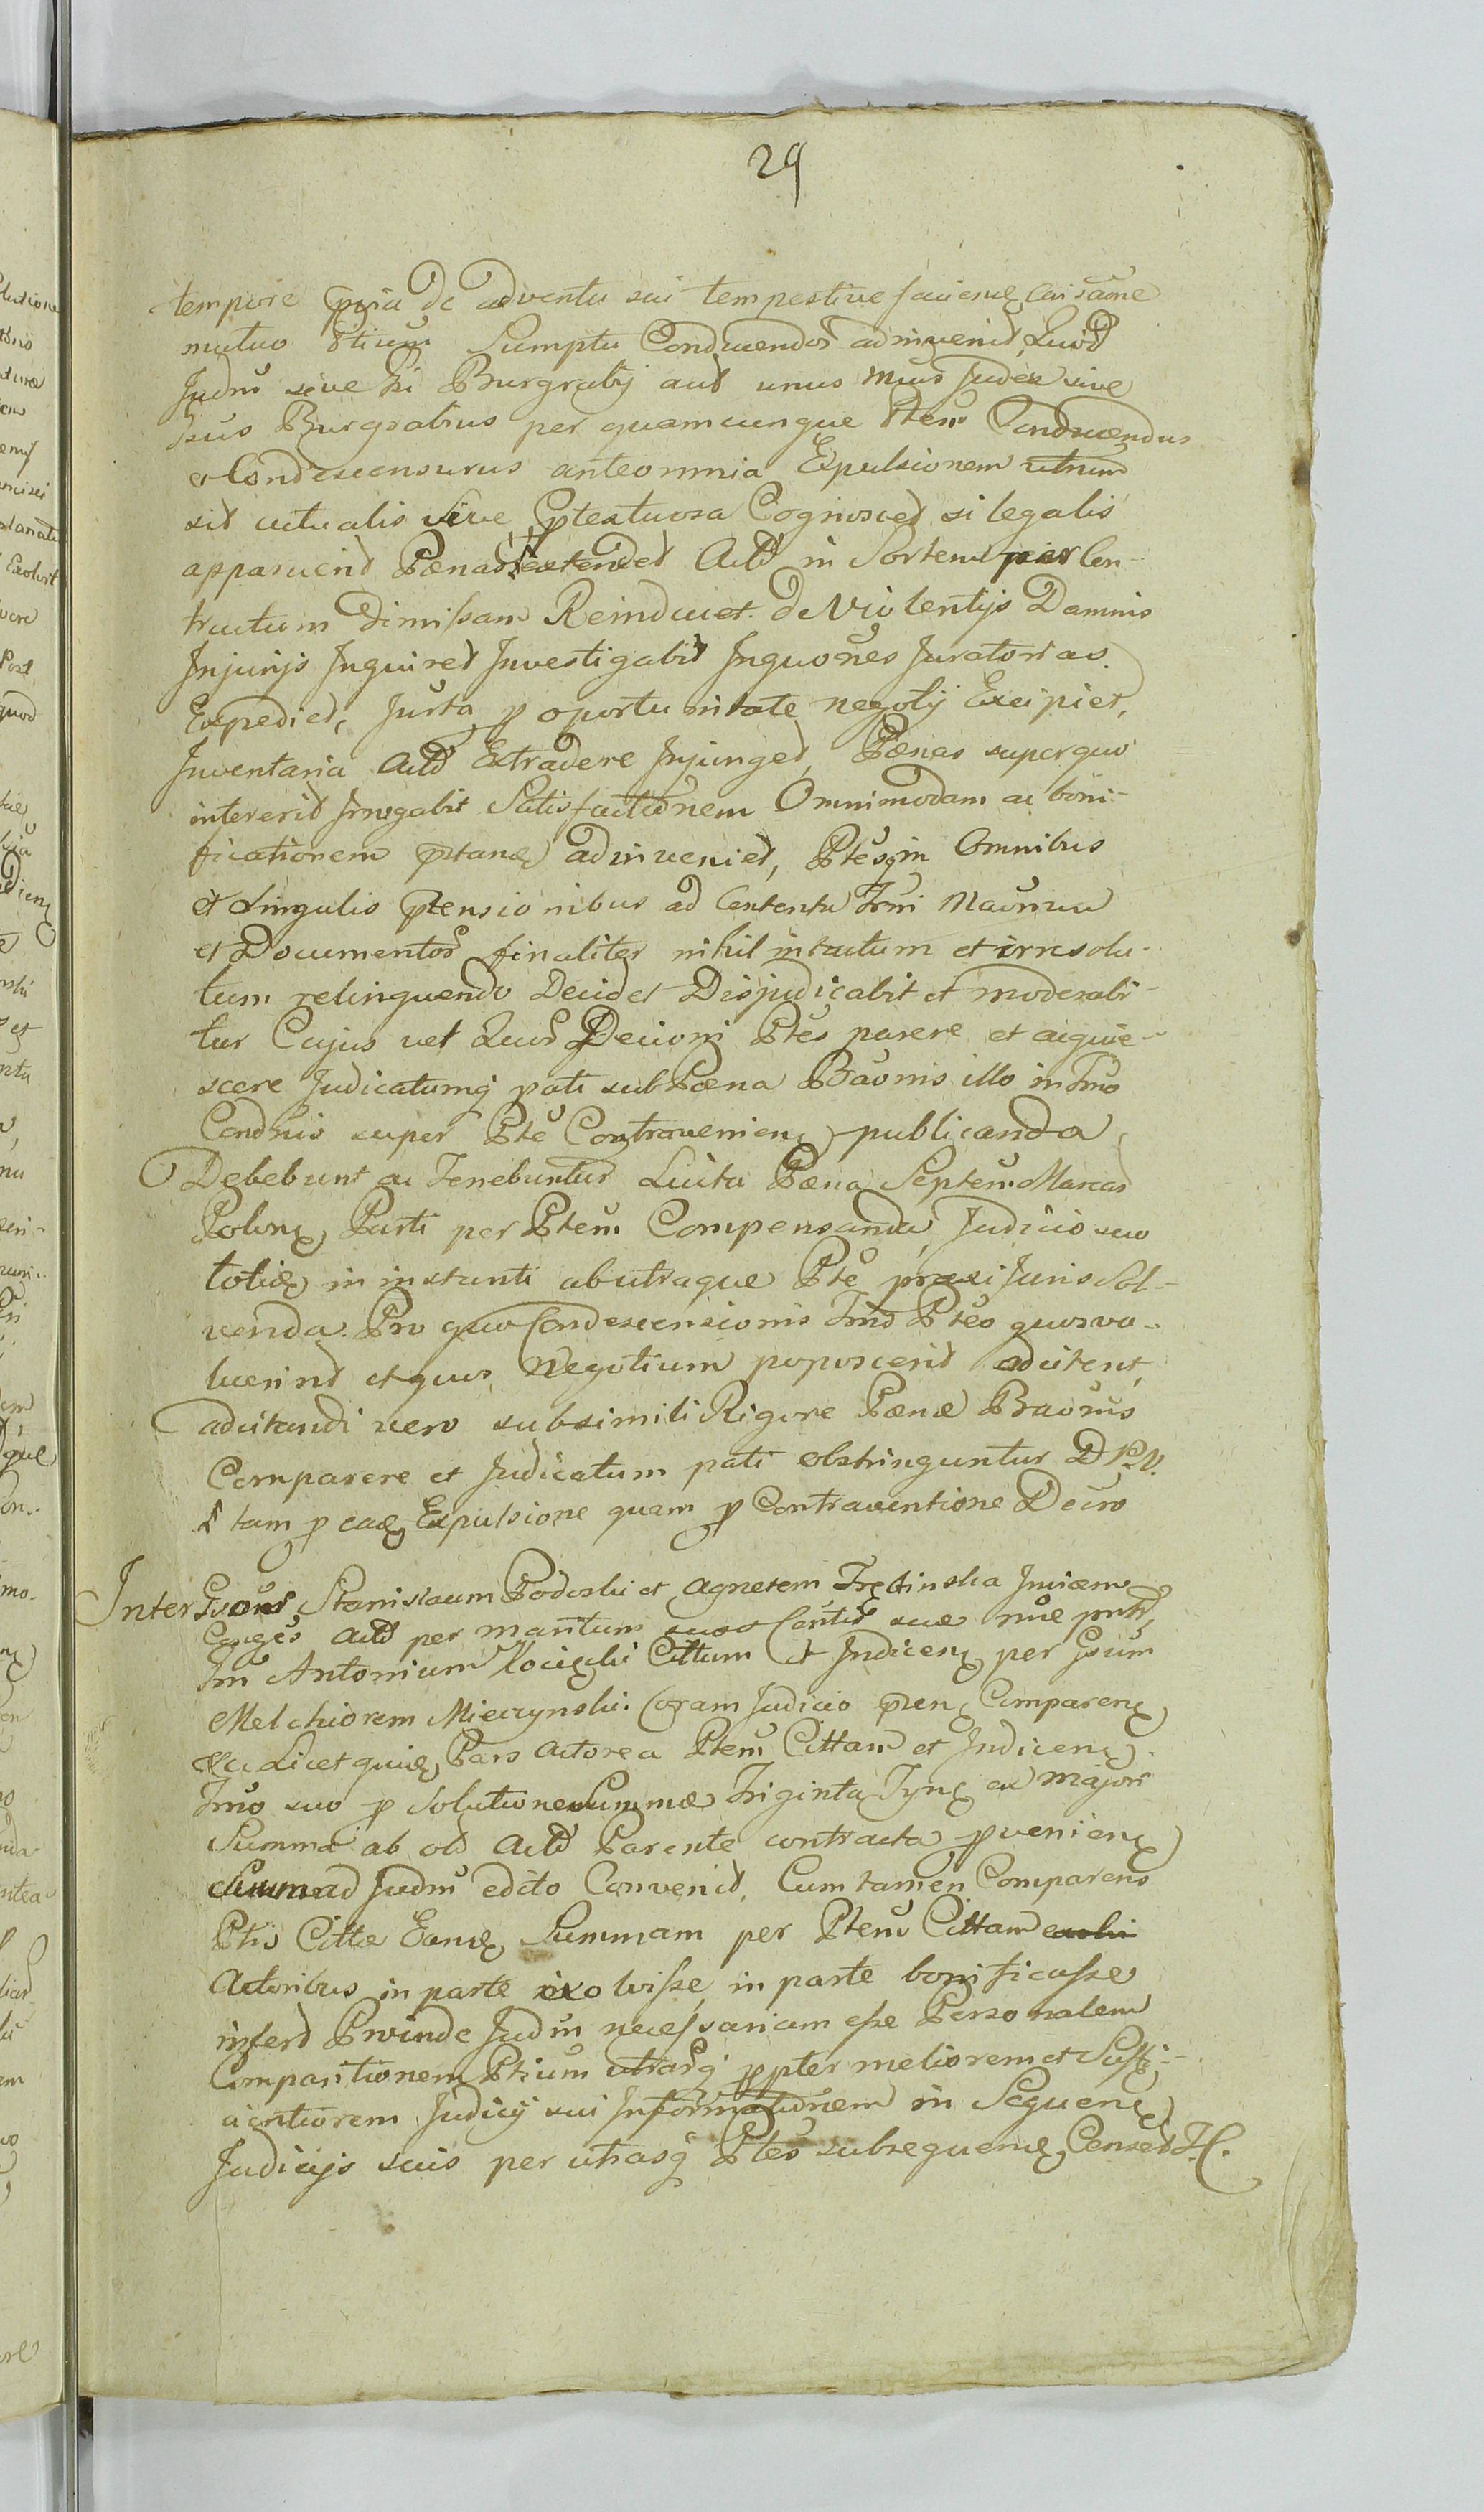 29
tempore de adventu sui tempestive
mutuo Ptium Sumptu Conducendos adinvenit, Quod
Judm sive hi Burgrabij aut unus mius Judex sive
hus Burgrabius per quamcunque Ptem Conducendus
et Condescensurus anteomnia Expulsionem utrum
sit actualis sive ptextuosa Cognoscet si legalis
apparuerit Pænas extendet Actd in Sortem per Con-
tractum Dimissam Reinducet. de Violentijs Damnis
Injurijs Inquiret Investigabit Inquones Juratorias
Expediet, Jurta p oportunitate negotij Excipiet,
Inventaria Actd Extradere Injunget, Pænas super quo
intererit Irrogabit Satisfactionem Omnimodam ac boni-
ficationem adinveniet, Ptesq in Omnibus
et singulis ptensionibus ad Contenta Trmi
et Documentor finaliter nihil intactum et irresolu-
tum relinquendo Decidet Disjudicabit et moderabi-
tur Cujus vel Quor Decioni Ptes parere et acquie-
scere Judicatumq pati sub Pæna Baonis illo in Tmo
Condnis super Pte Contravenien publicanda
Debebunt ac Tenebuntur Luita Pæna Septem Marcar
Polon Parti per Ptem Compensanda, Judicio suo
toties in instanti ab utraque Pte praxi Juris Sol-
venda. Pro quo Condescensionis Tmo Ptes quos vo-
luerint et quos Negotium poposcerit adcitent
adcitandi vero sub simili Rigore Pænæ Baonis
Comparere et Judicatum pati obstringuntur D P. V.
tam p Expulsione quam p Contraventione Decro
Inter Gsos Stanislaum Podoski et Agnetem Inicem
Conges Actd per maritum suæ
Antonium Cittum et Indicen per Gsum
Melchiorem Mieczynski. Coram Judicio pten Comparen
Ex Licet Pars Actorea Ptem Cittam et Indicen
Tmo suo p Solutione Summæ Triginta Tyn ex majori
Summa ab old Actd Parente contracta pvenien
Summæ ad Judm edito Convenit, Cum tamen Comparens
Ptis Cittæ Summam per Ptem Cittam
Actoribus in parte exolvisse in parte bonificasse
infert Proinde Judm necessariam esse Personalem
Comparitionem Ptium utrarq ppter meliorem et Suffi-
cientiorem Judicij sui Informationem in Sequen
Judicijs suis per utrasq Ptes subsequen Censet